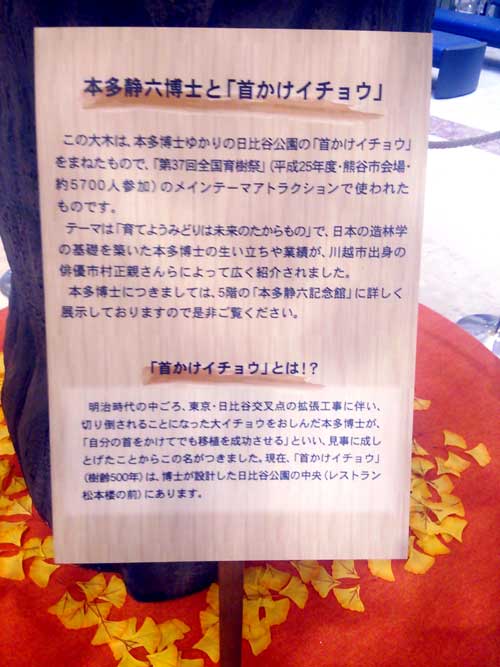 本多静六博士と「首かけイチョウ」
この大木は、本多博士ゆかりの日比谷公園の「首かけイチョウ」
をまねたもので、「第37回全国育樹祭」(平成25年度・熊谷市会場・
約5700人参加)のメインテーマアトラクションで使われた
ものです。
テーマは「育てようみどりは未来のたからもの」で、日本の造林学
の基礎を築いた本多博士の生い立ちや業績が、川越市出身の
俳優市村正親さんらによって広く紹介されました。
本多博士につきましては、5階の「本多静六記念館」に詳しく
展示しておりますので是非ご覧ください。
「首かけイチョウ」とは!?
明治時代の中ごろ、東京・日比谷交叉点の拡張工事に伴い、
切り倒されることになった大イチョウをおしんだ本多博士が、
「自分の首をかけてでも移植を成功させる」といい、見事に成し
とげたことからこの名がつきました。現在、「首かけイチョウ」
(樹齢500年)は、博士が設計した日比谷公園の中央(レストラン
松本楼の前)にあります。